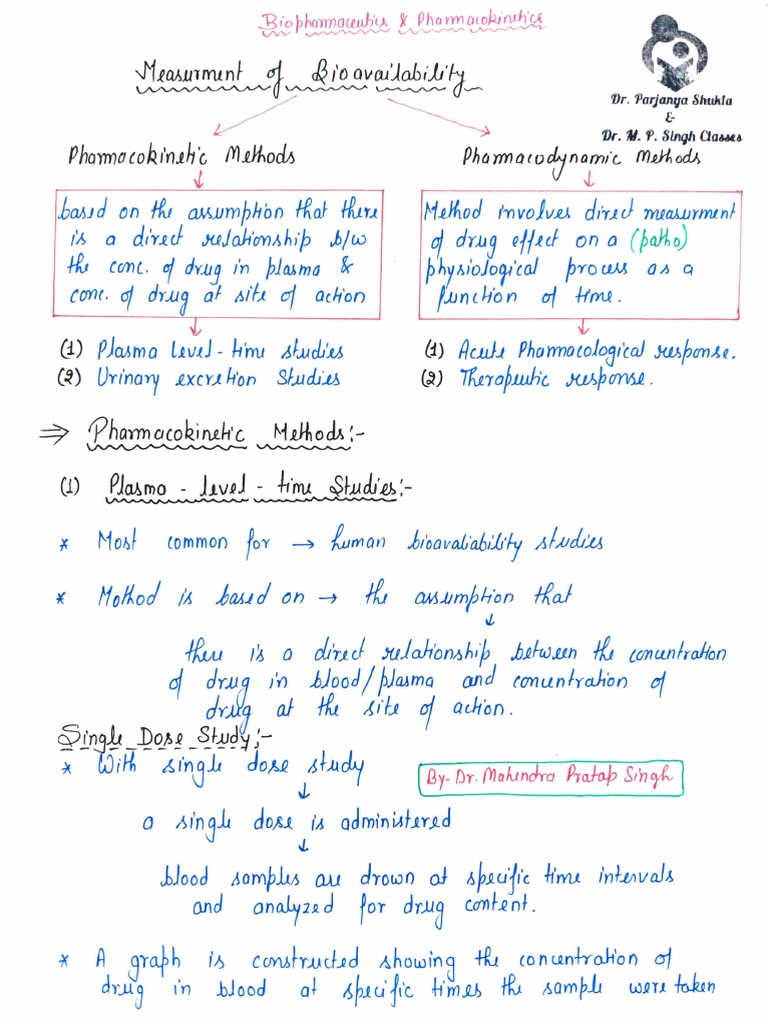 Biopharmaceutics & Pharmacokinetics
Measurment of Bioavailability
Dr. Parjanya Shukla
&
Dr. M. P. Singh Classes
Pharmacokinetic Methods
based on the assumption that there
is a direct relationship b/w
the conc. of drug in plasma &
conc. of drug at site of action
(1) Plasma level-time studies
(2) Urinary excretion Studies
Pharmacodynamic Methods
Method involves direct measurment
of drug effect on a (patho)
physiological process as a
function of time.
(1) Acute Pharmacological response.
(2) Therapeutic response.
⇒ Pharmacokinetic Methods:-
(1) Plasma - level - time Studies:-
* Most common for → human bioavaliability studies
* Mothod is based on → the assumption that
↓
there is a direct relationship between the concentration
of drug in blood/plasma and concentration of
drug at the site of action.
Single Dose Study:-
* With single dose study
By- Dr. Mahendra Pratap Singh
↓
a single dose is administered
↓
blood samples are drown at specific time intervals
and analyzed for drug content.
* A graph is constructed showing the concentration of
drug in blood at specific times the sample were taken